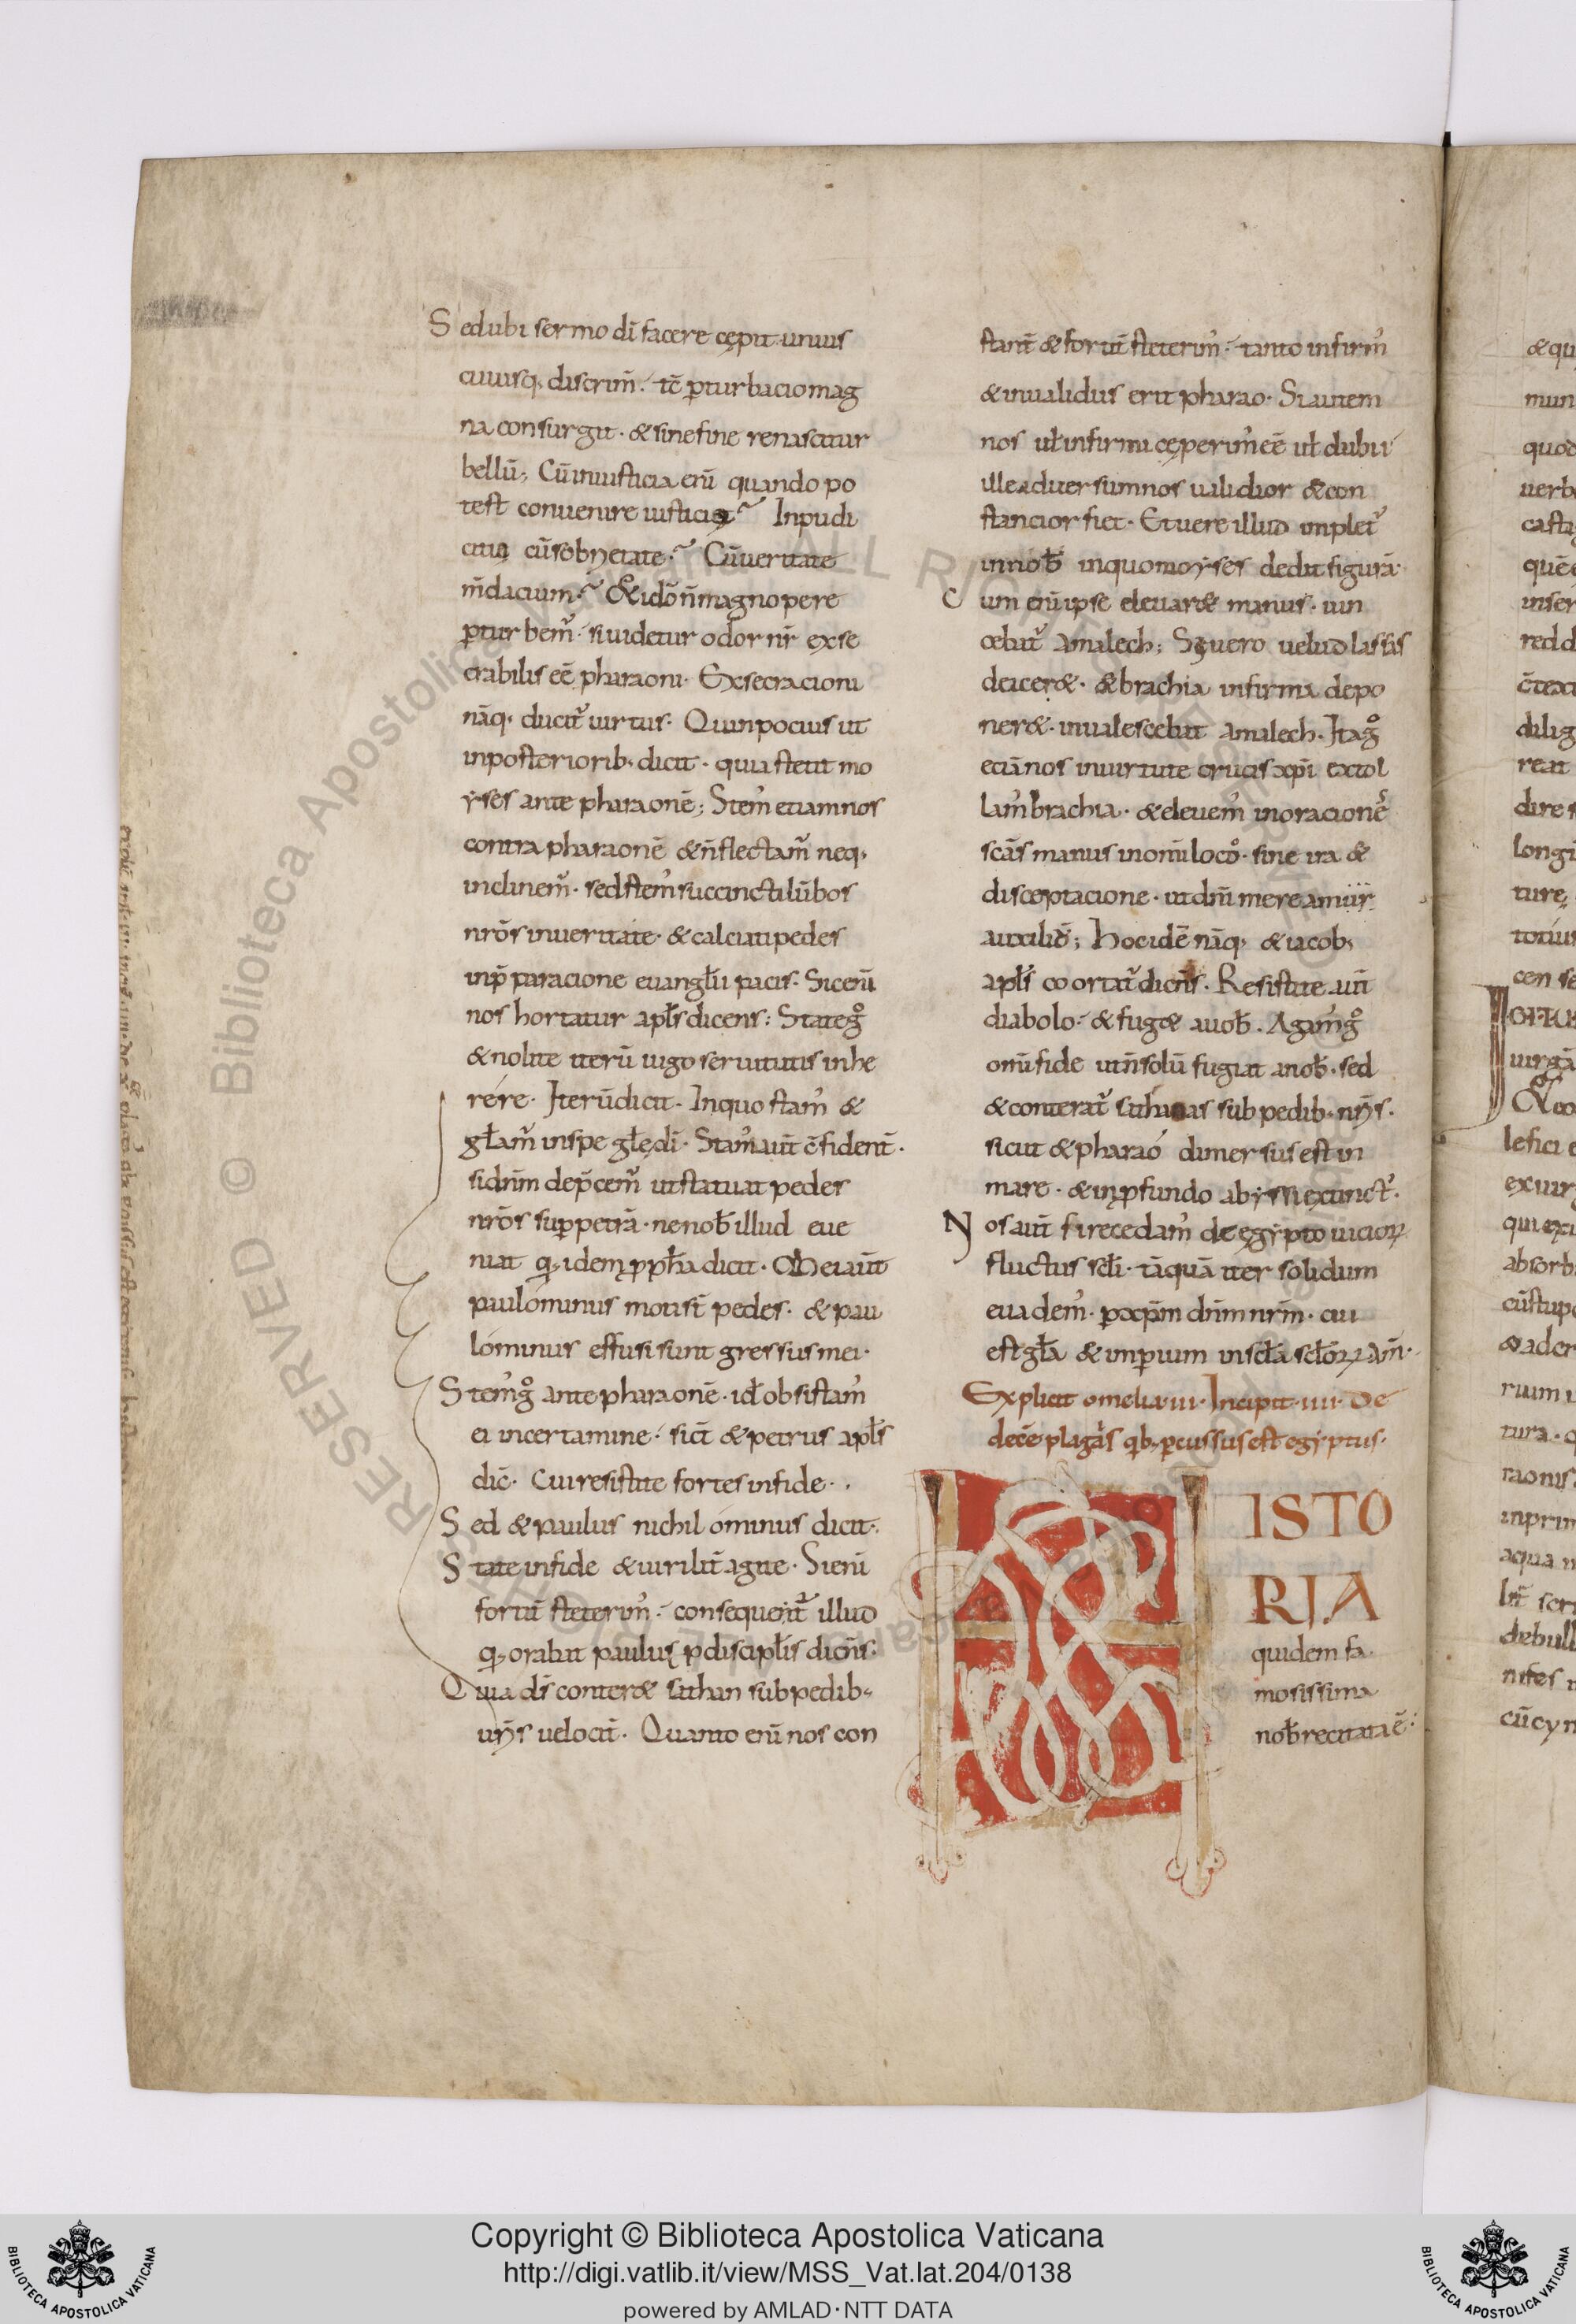 Sed ubi sermo dī facere cępit unius
cuiusq; discrim̄. tc̄ ꝑturbacio mag
na consurgit. & sine fine renascitur
bellū; Cū iniusticia enī quando po
test convenire iusticia? Inpudi
citia cū sobrietate? Cū veritate
m̄dacium? & idō n̄ magnopere
ꝑturbem᷒. si videtur odor nr̄ exse
crabilis eē pharaoni. Exsecracioni
nāq; ducit᷒ virtus. Quin pocius ut
in posteriorib; dicit. quia stetit mo
yses ante pharaonē; Stem᷒ etiam nos
contra pharaonē & n̄ flectam᷒ neq;
inclinem᷒. sed stem᷒ succincti lūbos
nrōs in veritate. & calciati pedes
in p̄paracione euangl̄ii pacis. Sic enī
nos hortatur apl̄s dicens: State gͦ
& nolite iterū iugo servitutis inhe
rére. Iterū dicit. In quo stam᷒ &
gl̄am᷒ in spe gl̄ę dī. Stam᷒ aut̄ c̄fident̄.
si dn̄m dep̄cem᷒ ut statuat pedes
nrōs supꝑ petrā. ne nob̄ illud eve
niat q; idem ꝓpħa dicit. Mei aut̄
paulominus moti st̄ pedes. & pau
lominus effusi sunt gressus mei.
Stem᷒ gͦ ante pharaonē. id ł obsistam᷒
ei in certamine. sict̄ & petrus apl̄s
dic̄. Cui resistite fortes in fide.
Sed & paulus nichilominus dicit.
State in fide & virilit̄ agite. Si enī
fortit̄ steterim᷒. consequent᷒ illud
q; orabat paulus ꝓ discipl̄is dicn̄s.
Quia ds̄ conter& sathan sub pedib;
vrīs velocit̄. Quanto enī nos con
stant̄ & fortit̄ steterim᷒. tanto infirm᷒
& invalidus erit pharao. Si autem
nos uł infirmi cęperim᷒ eē uł dubii
ille adversum nos validior & con
stancior fiet. Et vere illud implet᷒
in nob̄ in quo moyses dedit figurā.
Cum enī ipse elevar& manus. vin
cebat᷒ amalech; Si vero velud lassas
deicer&. & brachia infirma depo
ner&. invalescebat amalech. Itaq; gͦ
eciā nos in virtute crucis xp̄i extol
lam᷒ brachia. & elevem᷒ in oracionē
scās manus in omī loco. sine ira &
disceptacione. ut dn̄i mereamur
auxiliū; Hoc idē nāq; & iacob;
apl̄s coortat᷒ dicn̄s. Resistite aut̄
diabolo. & fug& a vob̄. Agam᷒ gͦ
omī fide ut n̄ solū fugiat a nob̄. sed
& conterat᷒ sathanas sub pedib; nrīs.
sicut & pharaó dimersus est in
mare. & in ꝓfundo abyssi extinct᷒.
Nos aut̄ si recedam᷒ de egypto vicioꝝ
fluctus scl̄i. tāquā iter solidum
evadem᷒. ꝑ xp̄m dn̄m nrm̄. cui
est gl̄a & imꝑium in scl̄a scl̄oꝝ am̄.
Explicit omelia III. Incipit IIII. De
decē plagis qb; ꝑcussus est egyptus.
HISTO
RIA
quidem fa
mosissima
nob̄ recitata ē.
Copyright © Biblioteca Apostolica Vaticana
http://digi.vatlib.it/view/MSS_Vat.lat.204/0138
powered by AMLAD·NTT DATA
BIBLIOTECA APOSTOLICA VATICANA
BIBLIOTECA APOSTOLICA VATICANA